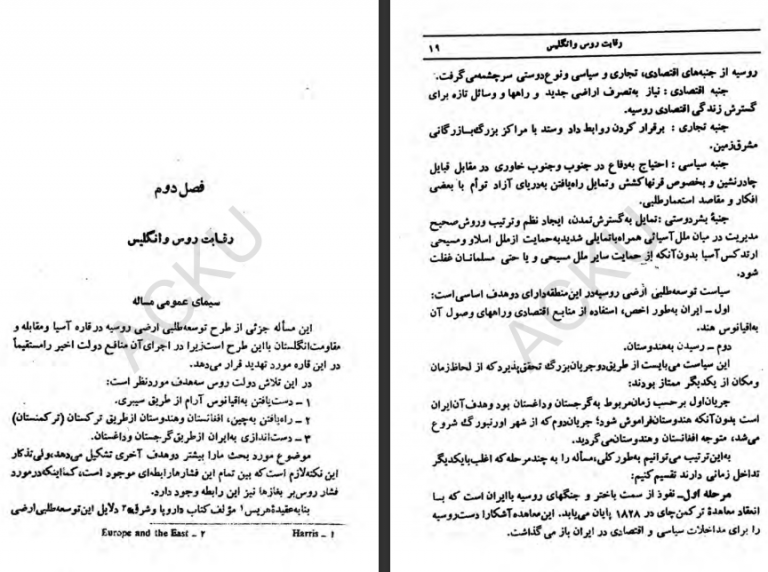 فصل دوم
رقابت روس و انگلیس
سیمای عمومی مساله
این مسأله جزئی از طرح توسعه‌طلبی ارضی روسیه در قاره آسیا و مقابله و
مقاومت انگلستان با این طرح است زیرا در اجرای آن منافع دولت اخیر را مستقیماً
در این قاره مورد تهدید قرار می‌دهد.
در این تلاش دولت روس سه‌هدف مورد نظر است:
۱ ــ دست‌یافتن به‌اقیانوس آرام از طریق سیبری.
۲ ــ راه‌یافتن به‌چین، افغانستان و هندوستان از طریق ترکستان (ترکمنستان)
۳ ــ دست‌اندازی به‌ایران از طریق گرجستان و داغستان.
موضوع مورد بحث مارا بیشتر دوهدف آخری تشکیل می‌دهد، ولی تذکار
این نکته لازم است که بین تمام این فشارها رابطه‌ای موجود است، کما اینکه در مورد
فشار روس بر بغازها نیز این رابطه وجود دارد.
بنا به عقیدهٔ هریس۱ مؤلف کتاب «اروپا و شرق»۲ دلایل این توسعه‌طلبی ارضی
Harris ــ ۱
Europe and the East ــ ۲
رقابت روس و انگلیس
۱۹
روسیه از جنبه‌های اقتصادی، تجاری و سیاسی و نوع‌دوستی سرچشمه می‌گرفت.
جنبه اقتصادی : نیاز به‌تصرف اراضی جدید و راهها و وسائل تازه برای
گسترش زندگی اقتصادی روسیه.
جنبه تجاری : برقرار کردن روابط داد و ستد با مراکز بزرگ بازرگانی
مشرق‌زمین.
جنبه سیاسی : احتیاج به‌دفاع در جنوب و جنوب خاوری در مقابل قبایل
چادرنشین و بخصوص قرنها کشش و تمایل راه‌یافتن به‌دریای آزاد توأم با بعضی
افکار و مقاصد استعمارطلبی.
جنبهٔ بشردوستی : تمایل به‌گسترش تمدن، ایجاد نظم و ترتیب و روش صحیح
مدیریت در میان ملل آسیائی همراه با تمایلی شدید به‌حمایت از ملل اسلاو و مسیحی
ارتدکس آسیا بدون آنکه از حمایت سایر ملل مسیحی و یا حتی مسلمانان غفلت
شود.
سیاست توسعه‌طلبی ارضی روسیه در این منطقه دارای دوهدف اساسی است:
اول ــ ایران به‌طور اخص، استفاده از منابع اقتصادی و راههای وصول آن
به‌اقیانوس هند.
دوم ــ رسیدن به‌هندوستان.
این سیاست می‌بایست از طریق دو جریان بزرگ تحقق پذیرد که از لحاظ زمان
و مکان از یکدیگر ممتاز بودند:
جریان اول بر حسب زمان مربوط به‌گرجستان و داغستان بود و هدف آن ایران
است بدون آنکه هندوستان فراموش شود؛ جریان دوم که از شهر اورنبورگ شروع
می‌شد، متوجه افغانستان و هندوستان می‌گردید.
به‌این ترتیب می‌توانیم به‌طور کلی، مسأله را به چند مرحله که اغلب با یکدیگر
تداخل زمانی دارند تقسیم کنیم:
مرحله اول ــ نفوذ از سمت باختر و جنگهای روسیه با ایران است که با
انعقاد معاهدهٔ ترکمن‌چای در ۱۸۲۸ پایان می‌یابد. این معاهده آشکارا دست روسیه
را برای مداخلات سیاسی و اقتصادی در ایران باز می‌گذاشت.
ACKU
ACKU